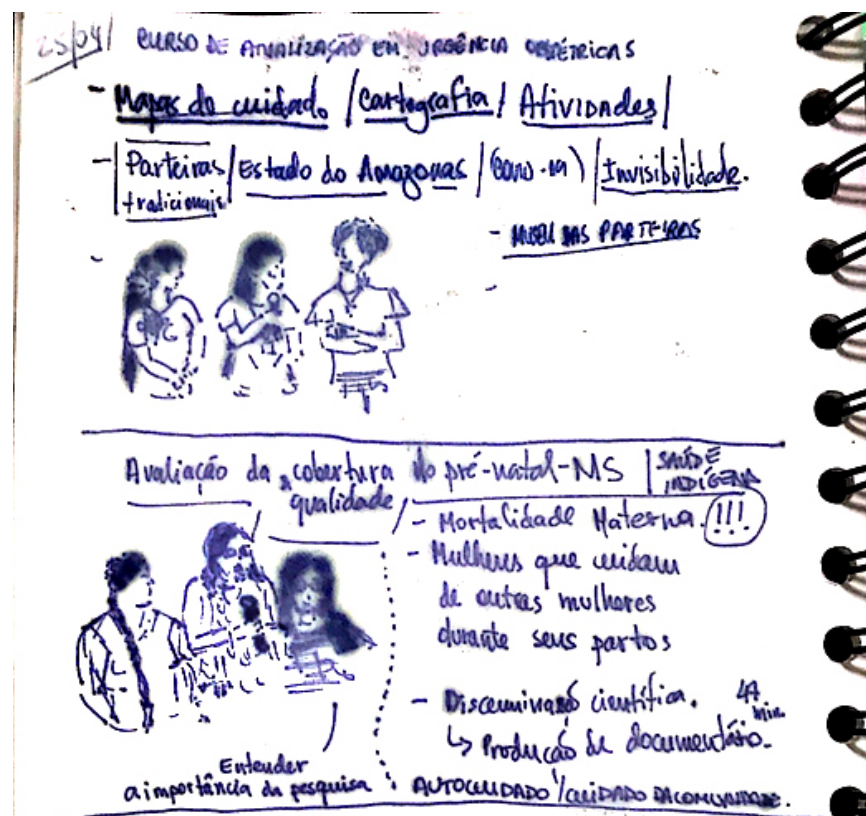 25/04/ CURSO DE ATUALIZAÇÃO EM URGÊNCIA OBSTÉTRICAS
- Mapas de cuidado / Cartografia / Atividades /
- | Parteiras tradicionais | Estado do Amazonas / (Covid-19) / Invisibilidade.
- DAS PARTEIRAS
Avaliação da cobertura do pré-natal-MS | SAÚDE INDÍGENA
qualidade
- Mortalidade Materna. (!!!)
- Mulheres que cuidam
de outras mulheres
durante seus partos
- científica.
↳ Produção de documentário. 47 min.
Entender
a importância da pesquisa
AUTOCUIDADO / CUIDADO DA COMUNIDADE.